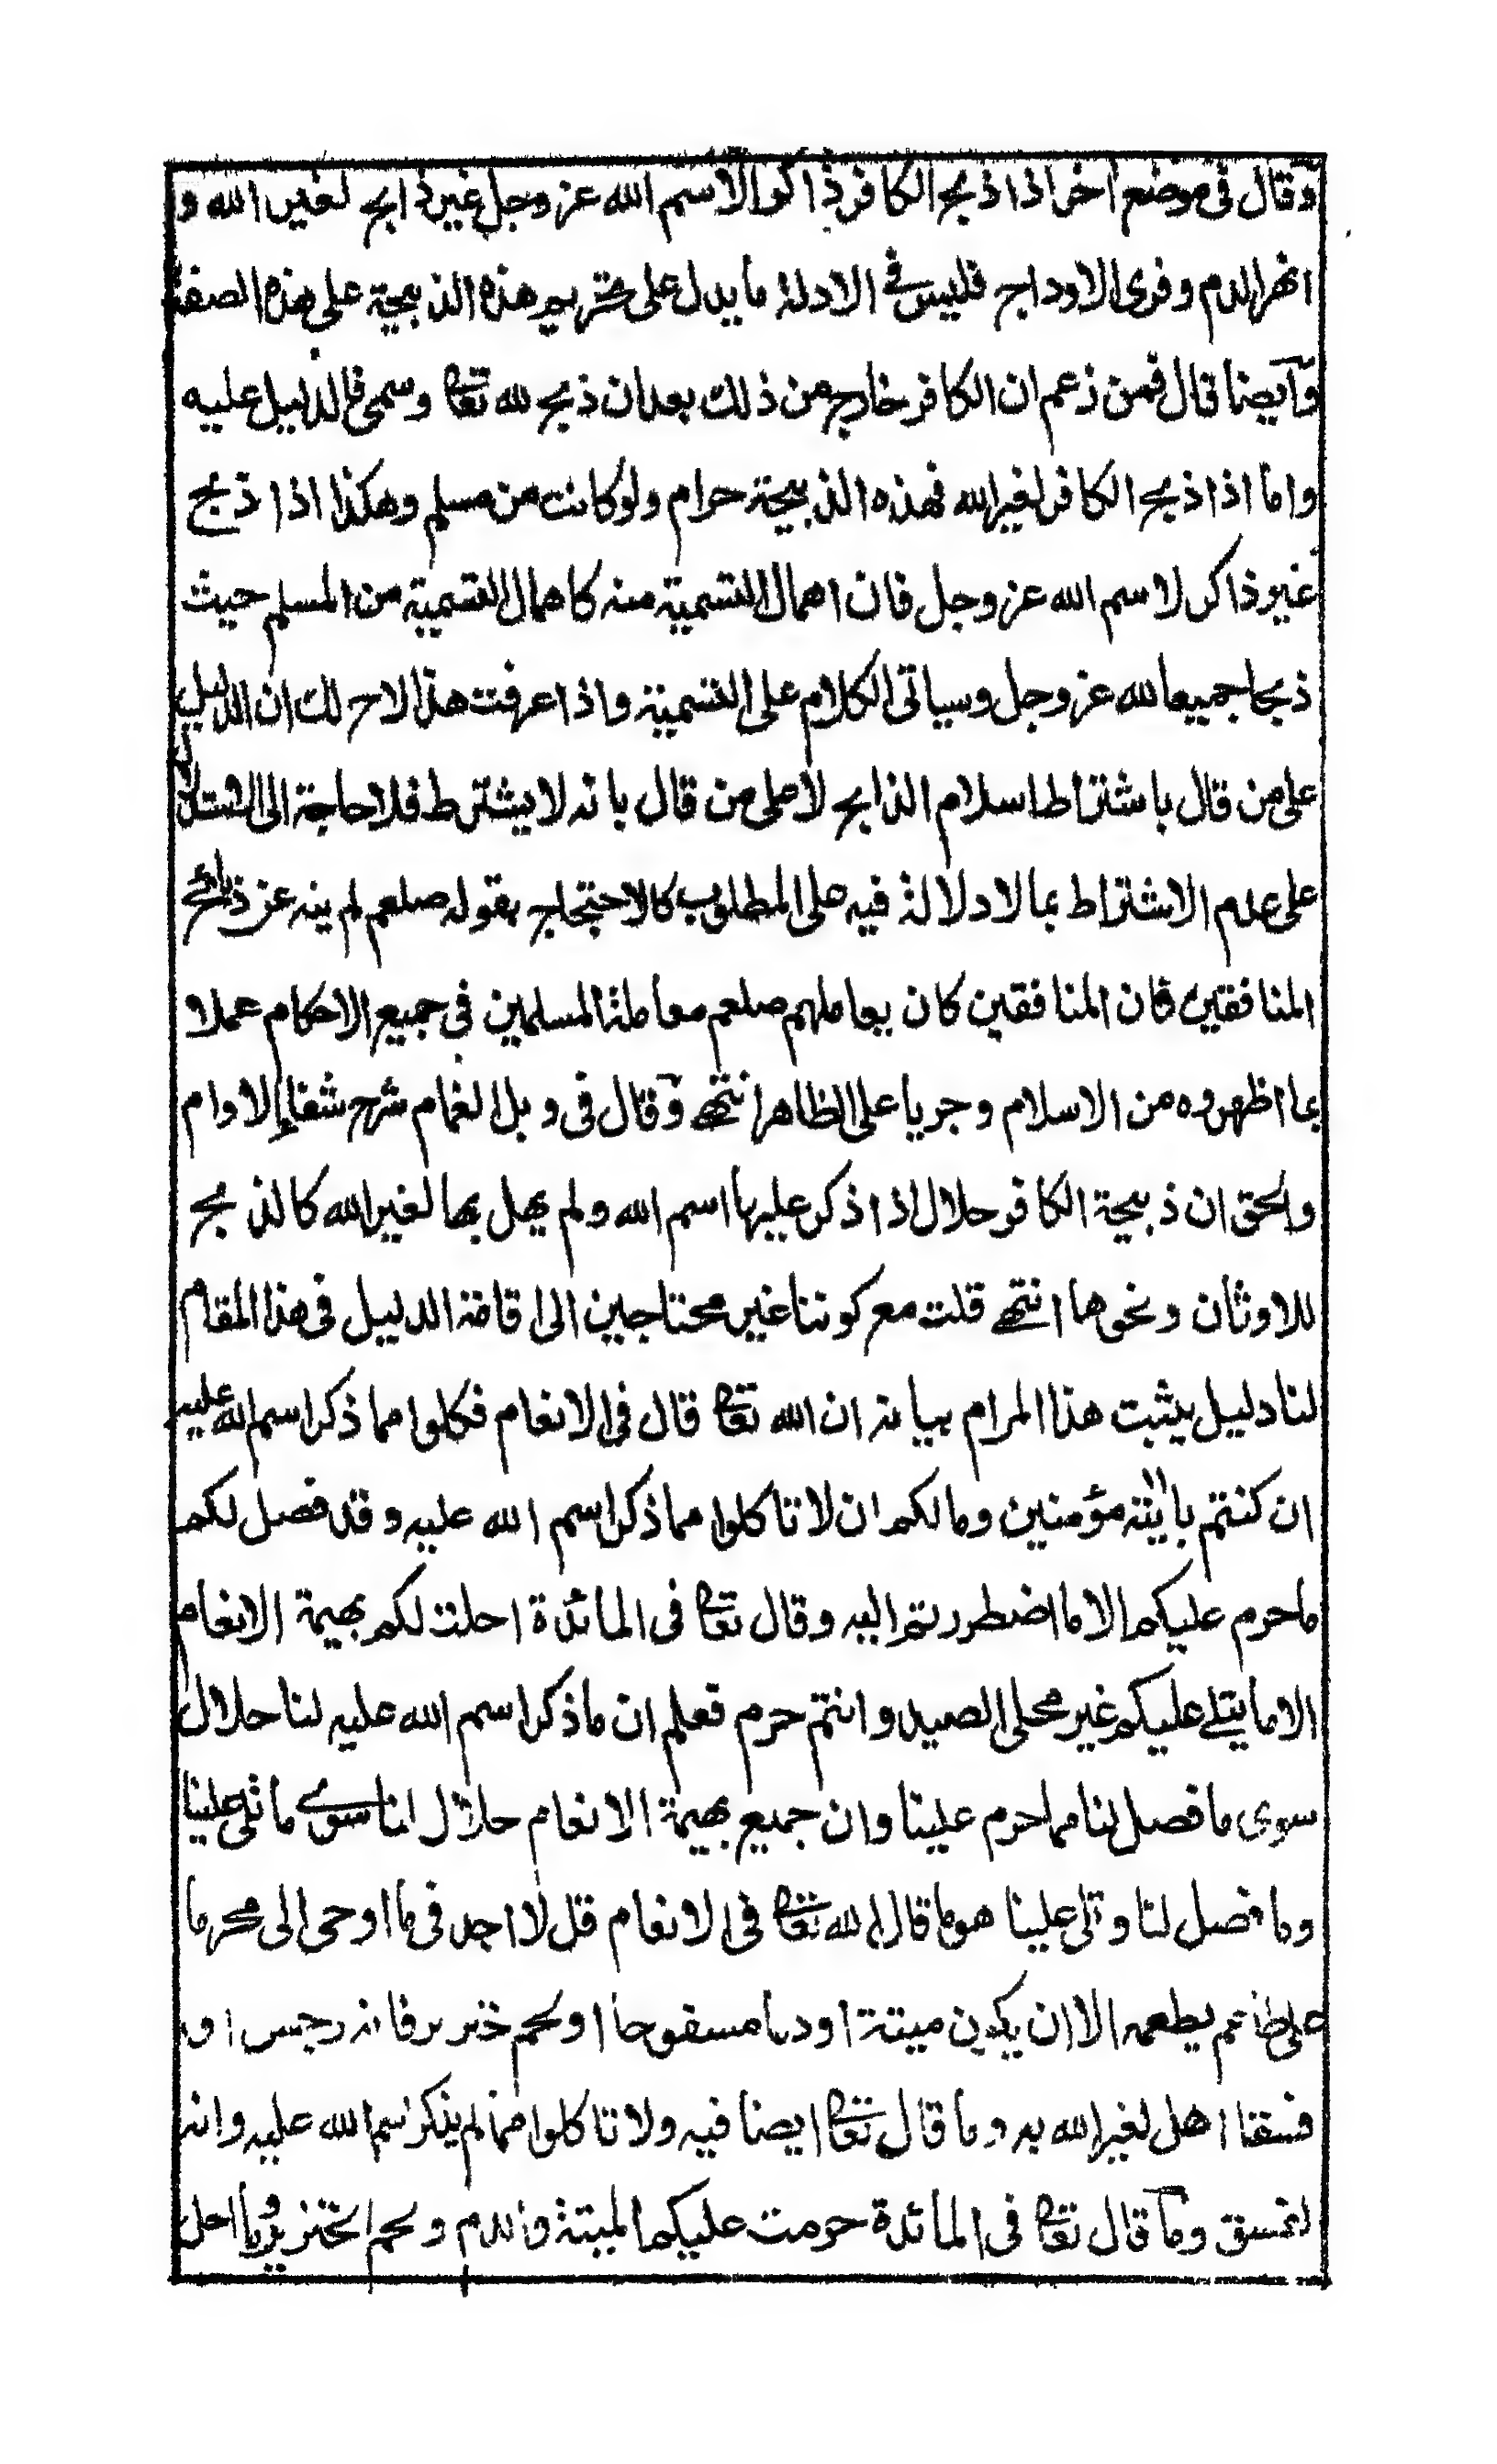 وقال فى موضع اخر اذا ذبح الكافر ذاكرا لاسم الله عز وجل غير ذابح لغير الله و
انهر الدم وفرى الاوداج فليس فى الادلة ما يدل على تحريم هذه الذبيحة على هذه الصفة
وآيضا قال فمن زعم ان الكافر خارج من ذلك بعد ان ذبح لله تعا وسمى فالدليل عليه
واما اذا ذبح الكافر لغير الله فهذه الذبيحة حرام ولو كانت من مسلم وهكذا اذا ذبح
غير ذاكر لاسم الله عز وجل فان اهمال التسمية منه كاهمال التسمية من المسلم حيث
ذبحا جميعا لله عز وجل وسياتى الكلام على التسمية واذا عرفت هذا لاح لك ان الدليل
على من قال باشتراط اسلام الذابح لا على من قال بانه لا يشترط فلا حاجة الى الاستدلال
على عدم الاشتراط بما لا دلالة فيه على المطلوب كالاحتجاج بقوله صلعم لم ينه عن ذبائح
المنافقين فان المنافقين كان يعاملهم صلعم معاملة المسلمين فى جميع الاحكام عملا
بما اظهروه من الاسلام وجريا على الظاهر انتهى وقال فى وبل الغمام شرح شفاء الاوام
والحق ان ذبيحة الكافر حلال اذا ذكر عليها اسم الله ولم يهل بها لغير الله كالذبح
للاوثان ونحوها انتهى قلت مع كوننا غير محتاجين الى اقامة الدليل فى هذا المقام
لنا دليل يثبت هذا المرام بيانه ان الله تعا قال فى الانعام فكلوا مما ذكر اسم الله عليه
ان كنتم باٰيٰته مؤمنين وما لكم ان لا تاكلوا مما ذكر اسم الله عليه وقد فصل لكم
ما حرم عليكم الا ما اضطررتم اليه وقال تعا فى المائدة احلت لكم بهيمة الانعام
الا ما يتلى عليكم غير محلى الصيد وانتم حرم فعلم ان ما ذكر اسم الله عليه لنا حلال
سوى ما فصل لنا مما حرم علينا وان جميع بهيمة الانعام حلال لنا سوى ما تلى علينا
وما فصل لنا وتلى علينا هو ما قال الله تعا فى الانعام قل لا اجد فى ما اوحى الى محرما
على طاعم يطعمه الا ان يكون ميتة او دما مسفوحا او لحم خنزير فانه رجس او
فسقا اهل لغير الله به وما قال تعا ايضا فيه ولا تاكلوا مما لم يذكر اسم الله عليه وانه
لفسق وما قال تعا فى المائدة حرمت عليكم الميتة والدم ولحم الخنزير وما اهل